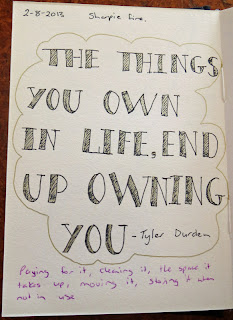 2-8-2013 Sharpie fine.
THE THINGS
YOU OWN
IN LIFE, END
UP OWNING
YOU - Tyler Durden
Paying for it, cleaning it, the space it
takes up, moving it, storing it when
not in use